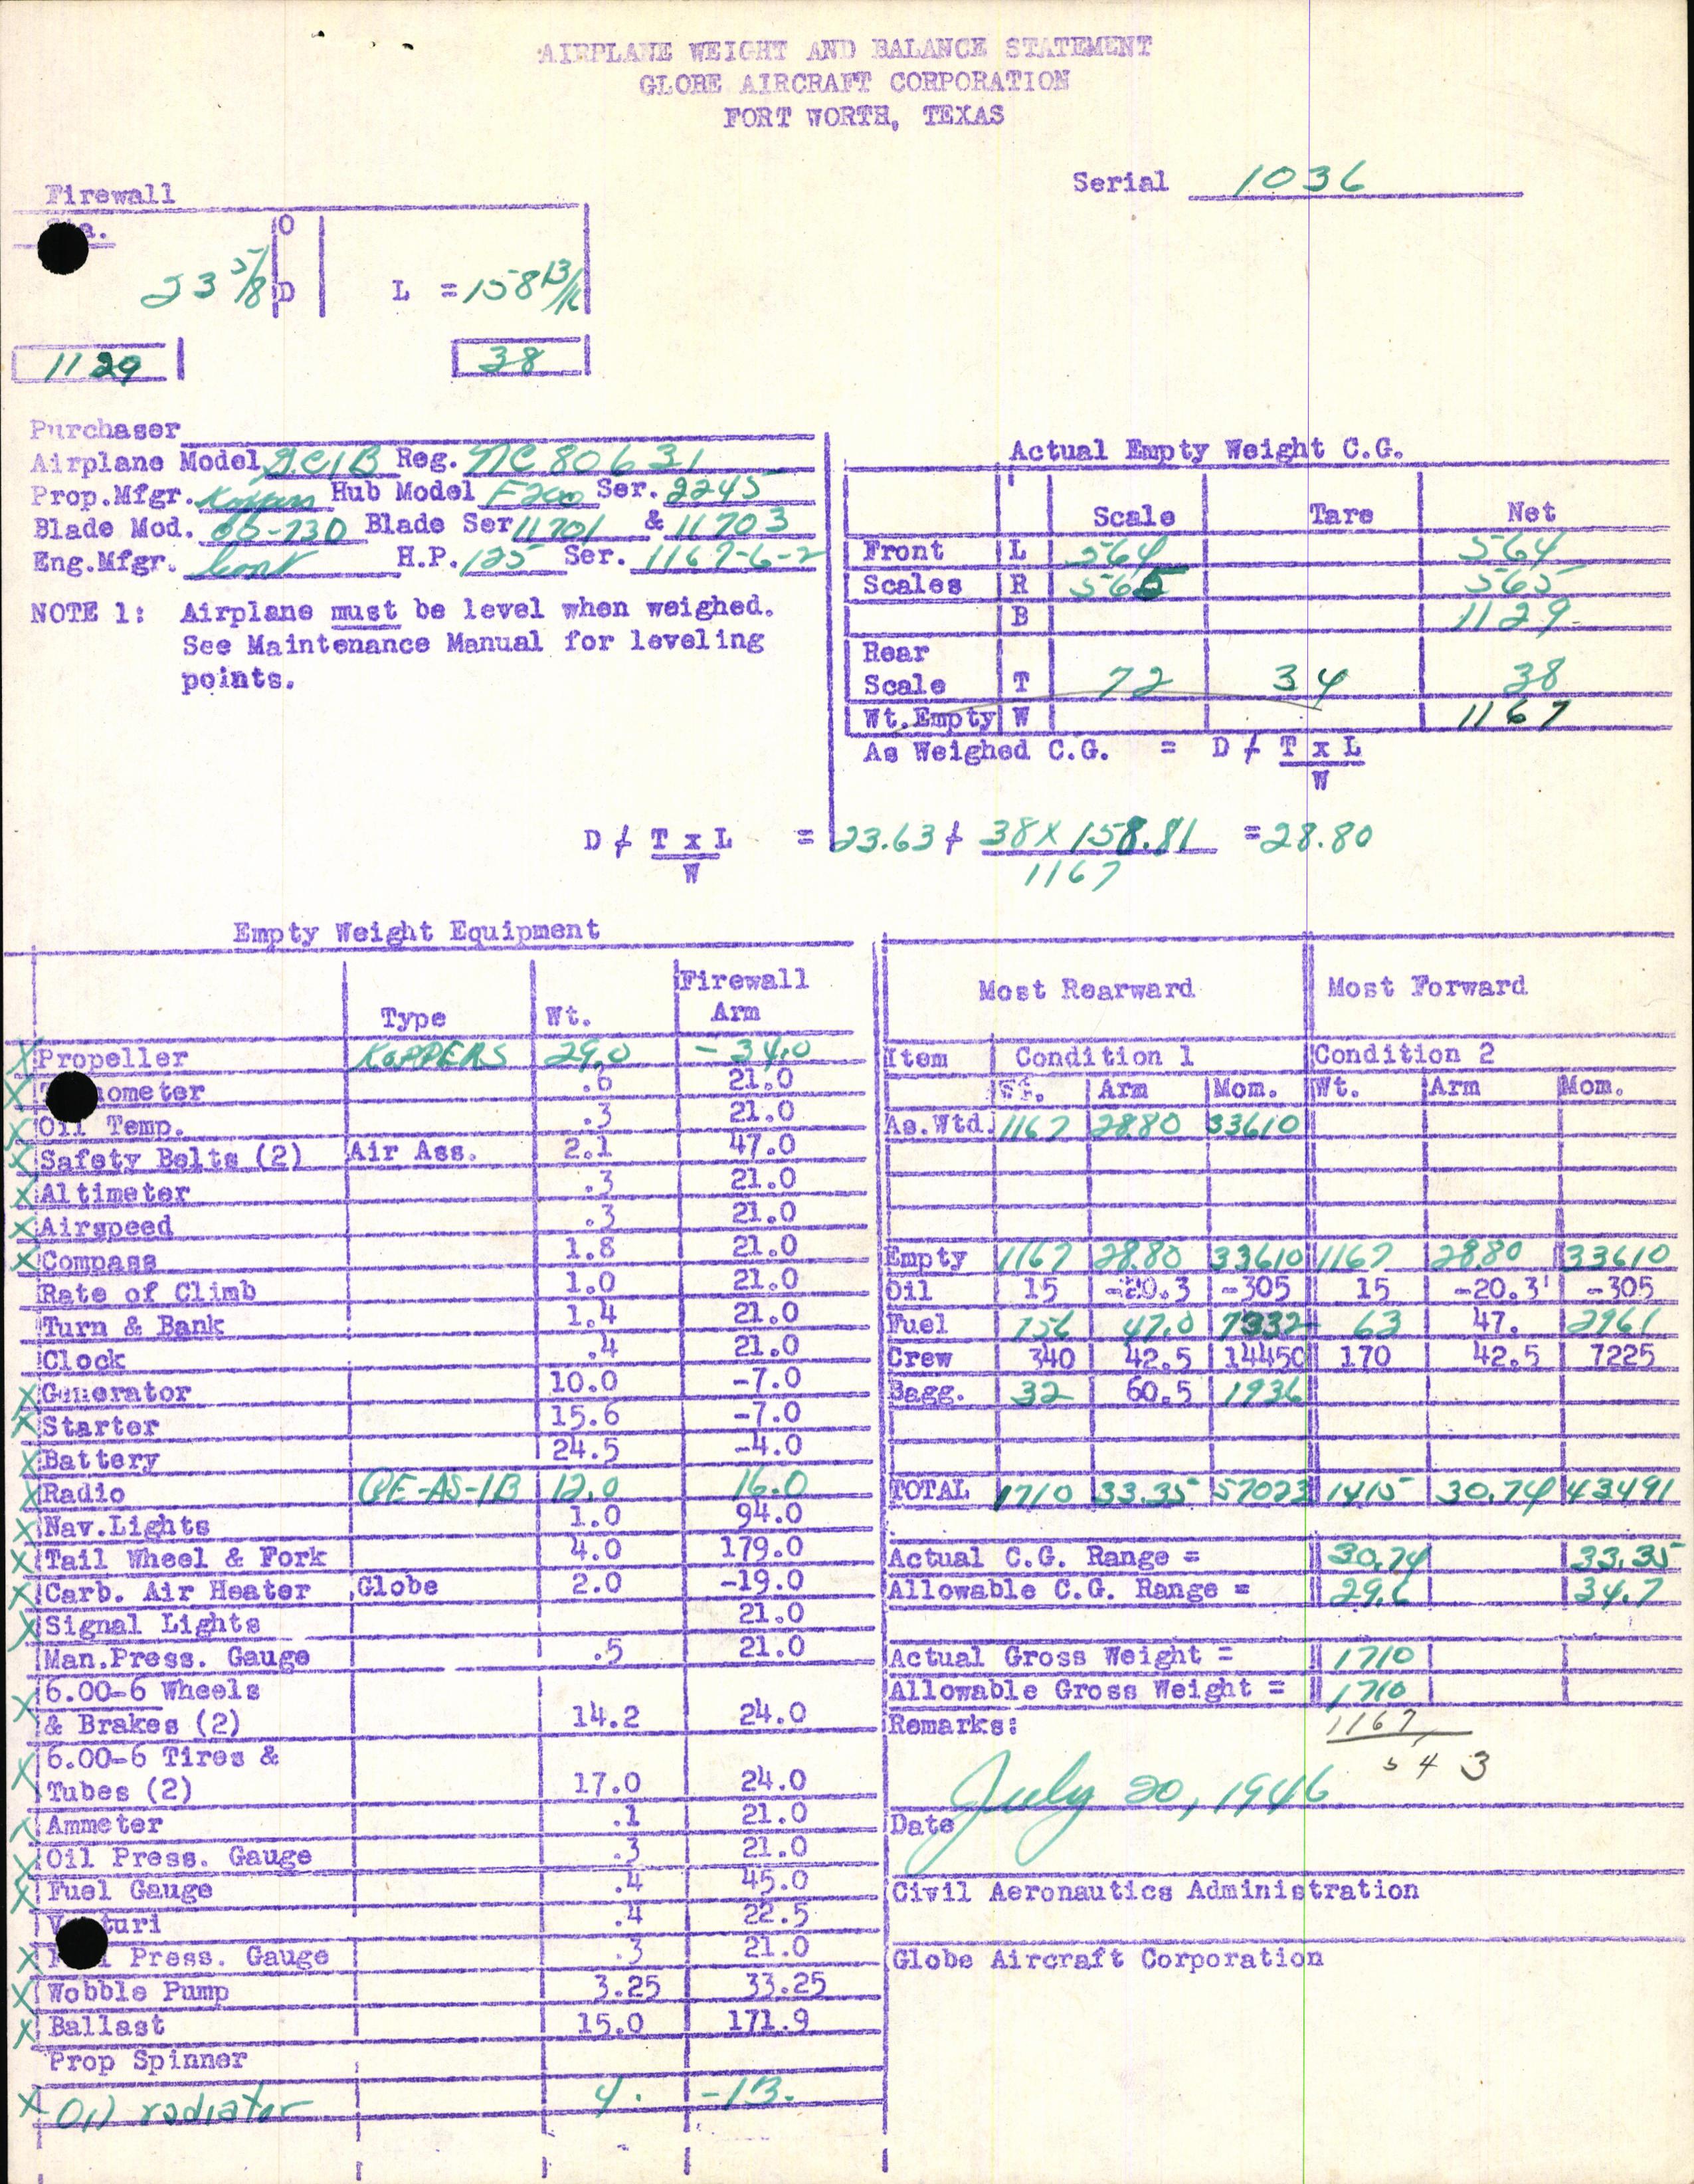 AIRPLANE WEIGHT AND BALANCE STATEMENT
GLOBE AIRCRAFT CORPORATION
FORT WORTH, TEXAS
Serial 1036
Firewall
Sta.
O
23 5/8 D L = 158 13/16
1129 38
Purchaser
Airplane Model GC1B Reg. NC80631
Prop.Mfgr. Koppers Hub Model F200 Ser. 2245
Blade Mod. 66-730 Blade Ser 11701 & 11703
Eng.Mfgr. Cont H.P. 125 Ser. 1167-6-2
NOTE 1: Airplane must be level when weighed.
See Maintenance Manual for leveling
points.
Actual Empty Weight C.G.
Scale Tare Net
Front L 564 564
Scales R 565 565
B 1129
Rear
Scale T 72 34 38
Wt.Empty W 1167
As Weighed C.G. = D + T x L
W
D + T x L = 23.63 + 38 X 158.81 = 28.80
W 1167
Empty Weight Equipment
Type Wt. Firewall Arm
X Propeller KOPPERS 29.0 -34.0
X ometer .6 21.0
X Oil Temp. .3 21.0
X Safety Belts (2) Air Ass. 2.1 47.0
X Altimeter .3 21.0
X Airspeed .3 21.0
X Compass 1.8 21.0
Rate of Climb 1.0 21.0
Turn & Bank 1.4 21.0
Clock .4 21.0
X Generator 10.0 -7.0
X Starter 15.6 -7.0
X Battery 24.5 -4.0
X Radio 12.0 16.0
X Nav.Lights 1.0 94.0
X Tail Wheel & Fork 4.0 179.0
X Carb. Air Heater Globe 2.0 -19.0
X Signal Lights 21.0
Man.Press. Gauge .5 21.0
X 6.00-6 Wheels
& Brakes (2) 14.2 24.0
X 6.00-6 Tires &
Tubes (2) 17.0 24.0
X Ammeter .1 21.0
X Oil Press. Gauge .3 21.0
X Fuel Gauge .4 45.0
V turi .4 22.5
X Press. Gauge .3 21.0
X Wobble Pump 3.25 33.25
X Ballast 15.0 171.9
Prop Spinner
X Oil radiator 4. -13.
Most Rearward Most Forward
Item Condition 1 Condition 2
Wt. Arm Mom. Wt. Arm Mom.
As.Wtd. 1167 28.80 33610
Empty 1167 28.80 33610 1167 28.80 33610
Oil 15 -20.3 -305 15 -20.3 -305
Fuel 156 47.0 7332 63 47. 2961
Crew 340 42.5 14450 170 42.5 7225
Bagg. 32 60.5 1936
TOTAL 1710 33.35 57023 1415 30.74 43491
Actual C.G. Range = 30.74 33.35
Allowable C.G. Range = 29.6 34.7
Actual Gross Weight = 1710
Allowable Gross Weight = 1710
Remarks: 1167
543
Date July 20, 1946
Civil Aeronautics Administration
Globe Aircraft Corporation